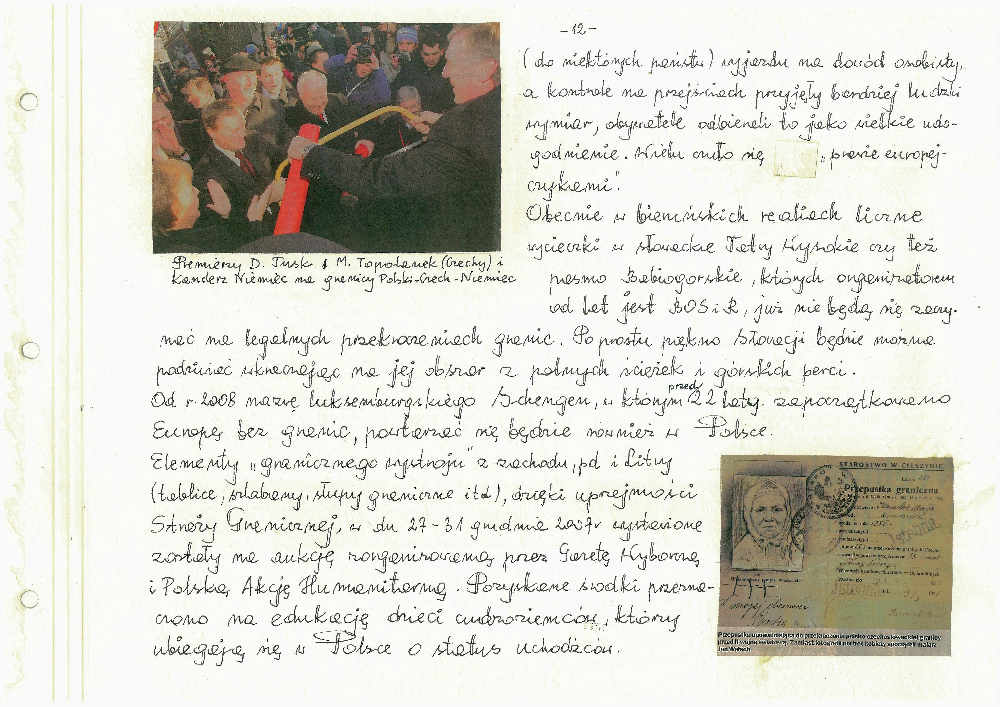 -12-
(do niektórych państw) wyjazdu na dowód osobisty,
a kontrole na przejściach przyjęły bardziej ludzki
wymiar, obywatele odbierali to jako wielkie udo-
godnienie. Wielu czuło się „prawie europej-
czykami".
Obecnie w bieruńskich realiach liczne
wycieczki w słowackie Tatry Wysokie czy też
pasmo Babiogórskie, których organizatorem
od lat jest BOSiR, już nie będą się zaczy-
nać na legalnych przekroczeniach granic. Po prostu piękno Słowacji będzie można
podziwiać wkraczając na jej obszar z polnych ścieżek i górskich perci.
Od r. 2008 nazwę luksemburskiego Schengen, w którym przed 22 laty zapoczątkowano
Europę bez granic, powtarzać się będzie również w Polsce.
Elementy „granicznego wystroju" z zachodu, pd i Litwy
(tablice, szlabany, słupy graniczne itd), dzięki uprzejmości
Straży Granicznej, w dn 27-31 grudnia 2007r wystawione
zostały na aukcję zorganizowaną przez Gazetę Wyborczą
i Polską Akcję Humanitarną. Pozyskane środki przezna-
czono na edukację dzieci cudzoziemców, którzy
ubiegają się w Polsce o status uchodźców.
Premierzy D. Tusk i M. Topolanek (Czechy) i
Kanclerz Niemiec na granicy Polski-Czech-Niemiec
STAROSTWO W CIESZYNIE
Przepustka graniczna
Przepustka upoważniająca do przekraczania polsko-czechosłowackiej granicy
przed II wojną światową. Zamiast fotografii portret kobiety sporządził malarz
Jan Wałach